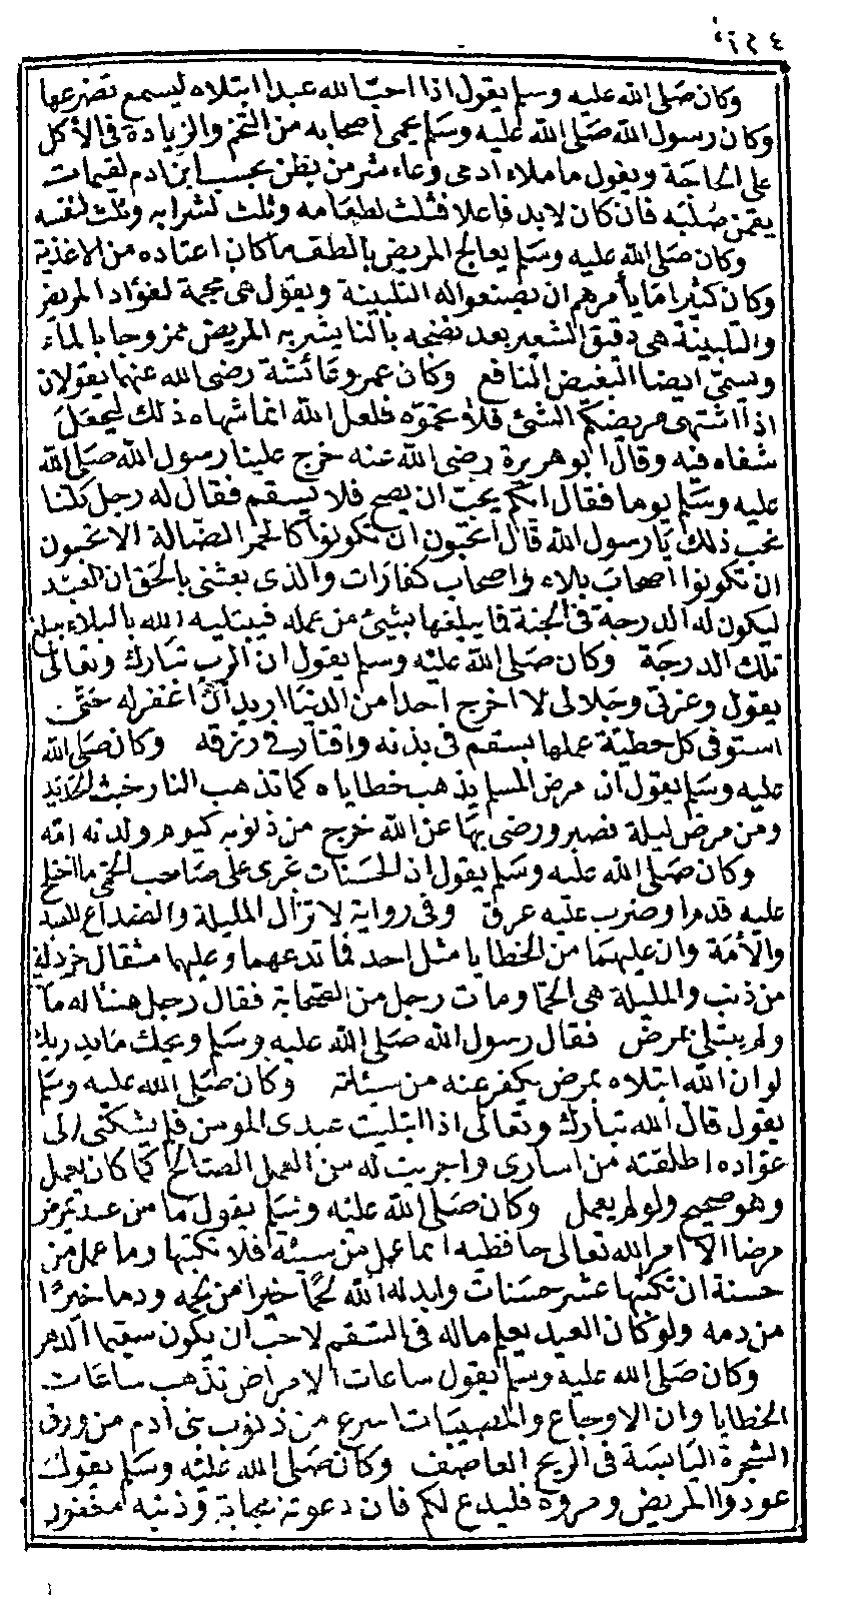 وكان صلى الله عليه وسلم يقول اذا احب الله عبدا ابتلاه ليسمع تضرعها
وكان رسول الله صلى الله عليه وسلم يحمى اصحابه من التخم والزيادة فى الأكل
على الحاجة ويقول ما ملاء ادمى وعاء شر من بطن بحسب ابن ادم لقيمات
يقمن صلبه فان كان لابد فاعلا فثلث لطعامه وثلث لشرابه وثلث لنفسه
وكان صلى الله عليه وسلم يعالج المريض بالطف ما كان اعتاده من الاغذية
وكان كثيرا ما يأمرهم ان يصنعوا له التلبينة ويقول هى مجمة لفؤاد المريض
والتلبينة هى دقيق الشعير بعد نضجه بالنا يشربه المريض ممزوجا بالماء
ويسمى ايضا البغيض المنافع وكان عمر وعائشة رضى الله عنهما يقولان
اذا اشتهى مريضكم الشئ فلا تحموه فلعل الله انما شهاه ذلك ليجعل
شفاه فيه وقال ابو هريرة رضى الله عنه خرج علينا رسول الله صلى الله
عليه وسلم يوما فقال ايكم يحب ان يصح فلا يسقم فقال له رجل كلنا
نحب ذلك يا رسول الله قال اتحبون ان تكونوا كالحمر الضالة الا تحبون
ان تكونوا اصحاب بلاء واصحاب كفارات والذى بعثنى بالحق ان العبد
ليكون له الدرجة فى الجنة فما يبلغها بشئ من عمله فيبتليه الله بالبلاء يبلغ
تلك الدرجة وكان صلى الله عليه وسلم يقول ان الرب تبارك وتعالى
يقول وعزتى وجلالى لا اخرج احدا من الدنيا اريد ان اغفر له حتى
استوفى كل خطيئة عملها بسقم فى بدنه واقتار فى رزقه وكان صلى الله
عليه وسلم يقول ان مرض المسلم يذهب خطاياه كما تذهب النار خبث الحديد
ومن مرض ليلة فصبر ورضى بها عن الله خرج من ذنوبه كيوم ولدته امه
وكان صلى الله عليه وسلم يقول ان الحسنات تجرى على صاحب الحمى ما اختلج
عليه قدم او ضرب عليه عرق وفى رواية لا تزال المليلة والصداع للعبد
والأمة وان عليهما من الخطايا مثل احد فما تدعهما وعليها مثقال خردلة
من ذنب والمليلة هى الحما ومات رجل من الصحابة فقال رجل هنئا له مات
ولم يبتلى بمرض فقال رسول الله صلى الله عليه وسلم ويحك ما يدريك
لو ان الله ابتلاه بمرض يكفر عنه من سيئاته وكان صلى الله عليه وسلم
يقول قال الله تبارك وتعالى اذا ابتليت عبدى المومن فلم يشكنى الى
عواده اطلقته من اسارى واجريت له من العمل الصالح كما كان يعمل
وهو صحيح ولو لم يعمل وكان صلى الله عليه وسلم يقول ما من عبد يمرض
مرضا الا امر الله تعالى حافظيه انما عمل من سيئة فلا تكتبها وما عمل من
حسنة ان تكتبها عشر حسنات وابدله الله لحما خيرا من لحمه ودما خيرا
من دمه ولو كان العبد يعلم ماله فى السقم لاحب ان يكون سقيما الدهر
وكان صلى الله عليه وسلم يقول ساعات الامراض تذهب ساعات
الخطايا وان الاوجاع والمصيبات اسرع من ذنوب بنى آدم من ورق
الشجرة اليابسة فى الريح العاصف وكان صلى الله عليه وسلم يقول
عودوا المريض ومروه فليدع لكم فان دعوته مجابة وذنبه مغفور